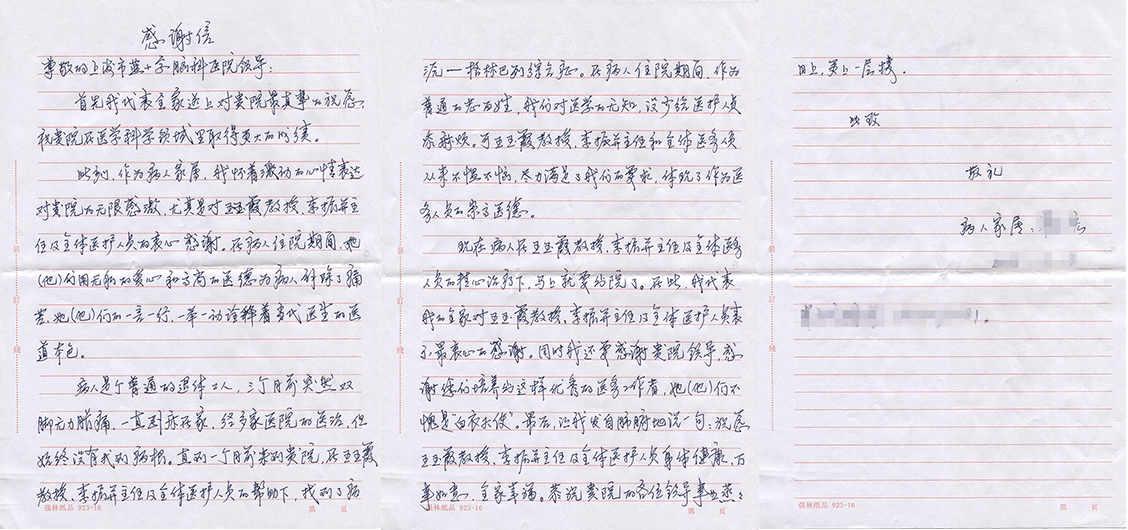 感谢信
尊敬的上海市蓝十字脑科医院领导：
首先我代表全家送上对贵院最真挚的祝愿
祝贵院在医学科学领域里取得更大的成绩。
此刻，作为病人家属，我怀着激动的心情表达
对贵院的无限感激，尤其是对王玉霞教授、李振升主
任及全体医护人员的衷心感谢。在病人住院期间，她
(他)们用无私的爱心和高尚的医德为病人解除了痛
苦，她(他)们的一言一行，一举一动诠释着当代医生的医
道本色。
病人是个普通的退休工人，三个月前突然双
脚无力胀痛，一直到床在家，经多家医院的医治，但
始终没有找到病根。直到一个月前来到贵院，在王玉霞
教授、李振升主任及全体医护人员的帮助下，找到了病
强林纸品 923-16
第 頁
装
訂
綫
流一格林巴利综合征。在病人住院期间，作为
普通的老百姓，我们对医学的无知，没少给医护人员
添麻烦。可王玉霞教授、李振升主任和全体医务人员
从来不愠不恼，尽力满足了我们的要求，体现了作为医
务人员的崇高医德。
现在病人在王玉霞教授、李振升主任及全体医务
人员的精心治疗下，马上就要出院了。在此，我代表
我的全家对王玉霞教授、李振升主任及全体医护人员表
示最衷心的感谢。同时我还要感谢贵院领导，感
谢你们培养出这样优秀的医务工作者，她(他)们不
愧是“白衣天使”。最后，让我发自肺腑地说一句：祝愿
王玉霞教授、李振升主任及全体医护人员身体健康，万
事如意，全家幸福。恭祝贵院的各位领导事业蒸蒸
强林纸品 923-16
第 頁
装
訂
綫
日上，更上一层楼。
此致
敬礼
病人家属：
强林纸品 923-16
第 頁
装
訂
綫